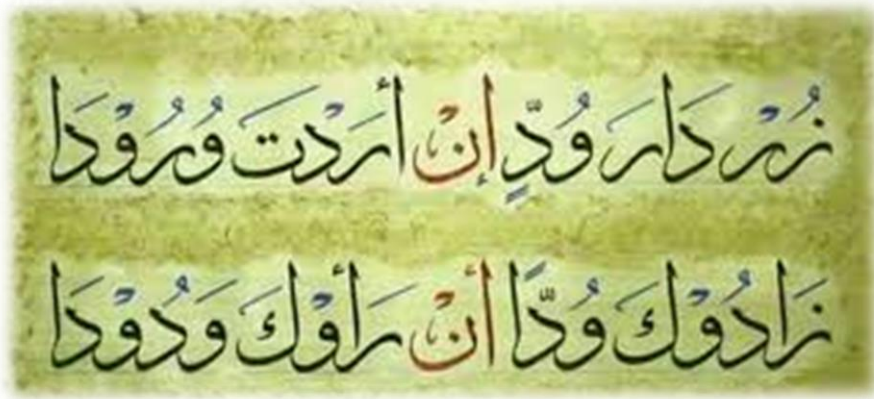 زُرْ دَارَ وُدٍّ إنْ أرَدْتَ وُرُوْدَا
زَادُوْكَ وُدًّا أنْ رَأَوْكَ وَدُوْدَا